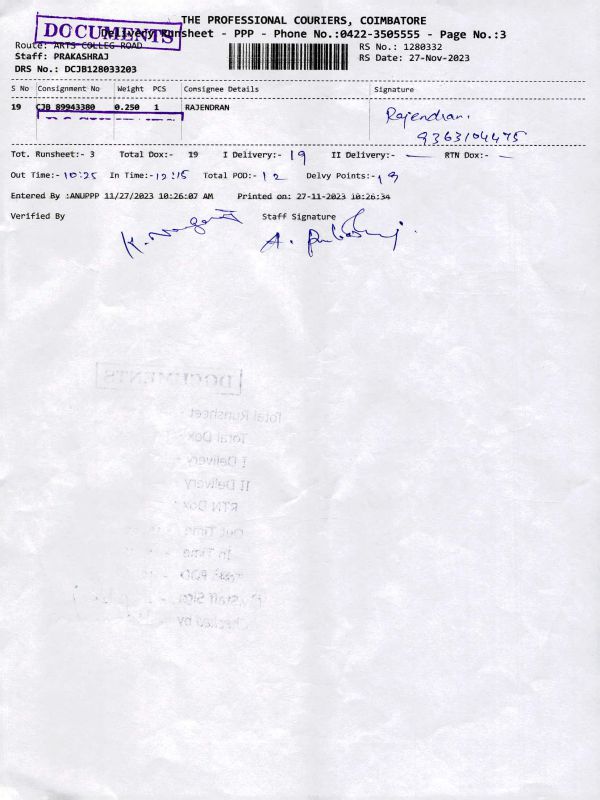 THE PROFESSIONAL COURIERS, COIMBATORE
DOCUMENTS
Delivery Runsheet - PPP - Phone No.:0422-3505555 - Page No.:3
Route: ARTS COLLEG ROAD RS No.: 1280332
Staff: PRAKASHRAJ RS Date: 27-Nov-2023
DRS No.: DCJB128033203
S No Consignment No Weight PCS Consignee Details Signature
19 CJB 89943380 0.250 1 RAJENDRAN Rajendran.
9363104475
Tot. Runsheet:- 3 Total Dox:- 19 I Delivery:- 19 II Delivery:- — RTN Dox:- —
Out Time:- 10:25 In Time:- 12:15 Total POD:- 12 Delvy Points:- 19
Entered By :ANUPPP 11/27/2023 10:26:07 AM Printed on: 27-11-2023 10:26:34
Verified By Staff Signature
DOCUMENTS
Total Runsheet -
Total Dox -
I Delivery -
II Delivery
RTN Dox -
Out Time -
In Time -
Total POD -
Staff Sign
Checked by